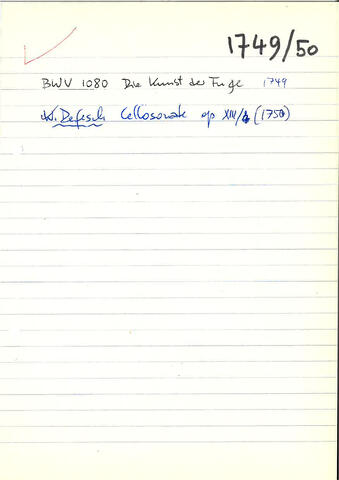 1749/50
BWV 1080 Die Kunst der Fuge 1749
W. Defesch Cellosonate op XIII/4 (1750)